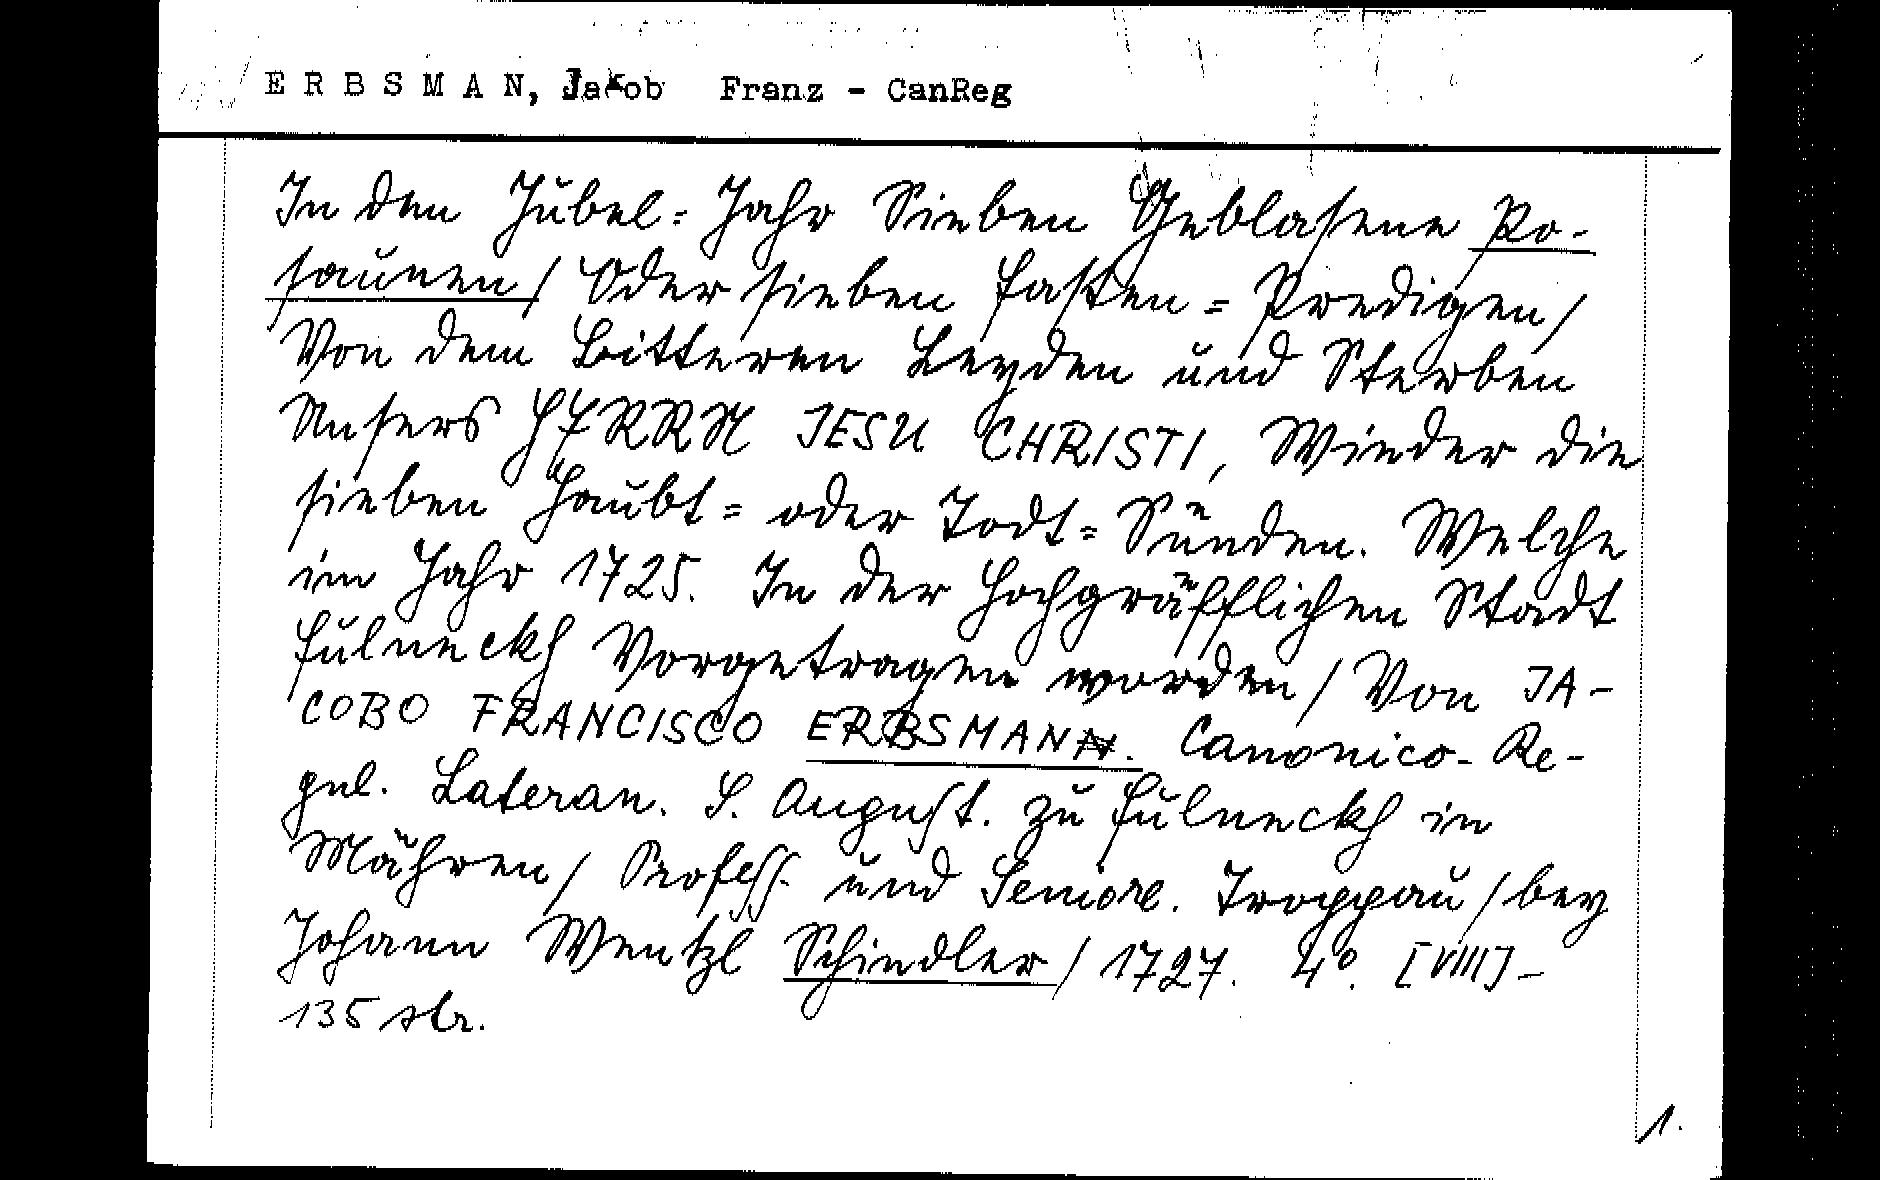 E R B S M A N, Jakob Franz - CanReg
In den Jubel= Jahr Sieben Geblasene Po-
saunen/ Oder sieben Fasten= Predigen/
Von dem Bitteren Leyden und Sterben
Unsers HERRN JESU CHRISTI, Wieder die
sieben Haubt= oder Todt= Sünden. Welche
im Jahr 1725. In der Hochgräfflichen Stadt
Fulneckh Vorgetragen worden/ Von JA-
COBO FRANCISCO ERBSMAN. Canonico- Re-
gul. Lateran. S. August. zu Fulneckh in
Mähren/ Profess. und Seniore. Troppau/ bey
Johann Wentzl Schindler/ 1727. 4°. [VIII]-
135 str.
1.